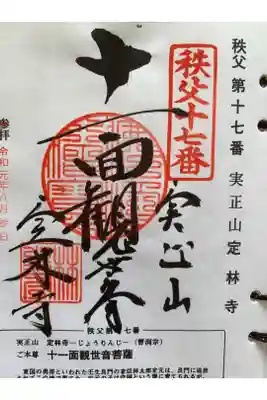 秩父 第十七番 実正山 定林寺
秩父十七番
実正山
十一面観世音
定林寺
参拝 令和元年八月 日
秩父第十七番
実正山 定林寺―じょうりんじ―(曹洞宗)
ご本尊 十一面観世音菩薩